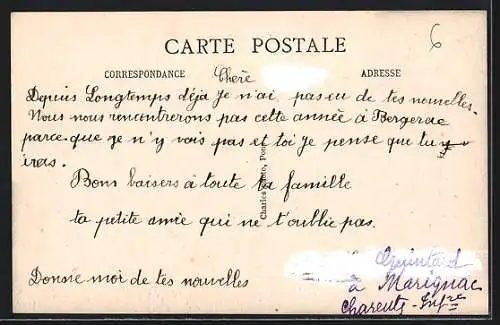 CARTE POSTALE
6
CORRESPONDANCE
ADRESSE
Chere
Depuis Longtemps déja je n'ai pas eu de tes nouvelles.
Nous nous rencontrerons pas cette année à Bergerac
parce que je n'y vais pas et toi je pense que tu y
iras.
Bons baisers à toute ta famille
ta petite amie qui ne t'oublie pas.
Donne moi de tes nouvelles
Quintard
à Marignac
Charente-Infre
Charles